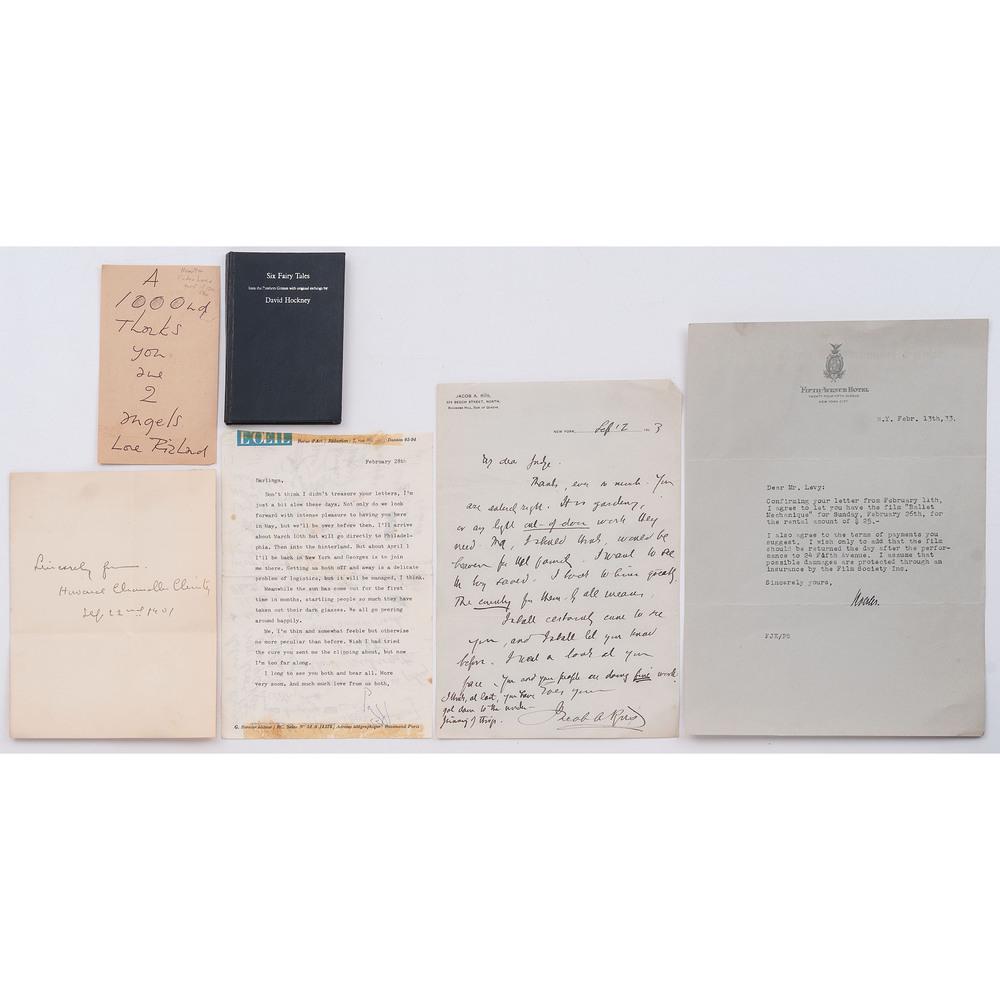 A
1000nd
Thanks
you
are
2
angels
Love Richard
Six Fairy Tales
from the Brothers Grimm with original etchings by
David Hockney
Sincerely yours
Howard Chandler Christy
Sep 22nd 1901
L'ŒIL Revue d'Art | Rédaction : Danton
February 28th
Darlings,
Don't think I didn't treasure your letters, I'm
just a bit slow these days. Not only do we look
forward with intense pleasure to having you here
in May, but we'll be over before then. I'll arrive
about March 10th but will go directly to Philadel-
phia. Then into the hinterland. But about April 1
I'll be back in New York and Georges is to join
me there. Getting us both off and away is a delicate
problem of logistics, but it will be managed, I think.
Meanwhile the sun has come out for the first
time in months, startling people so much they have
taken out their dark glasses. We all go peering
around happily.
Me, I'm thin and somewhat feeble but otherwise
no more peculiar than before. Wish I had tried
the cure you sent me the clipping about, but now
I'm too far along.
I long to see you both and hear all. More
very soon. And much much love from us both,
JACOB A. RIIS,
BEECH STREET, NORTH,
RICHMOND HILL, BOR OF QUEENS
NEW YORK, Sep 12 1903
My dear Judge.
Thanks, ever so much. You
are entirely right. It is gardening,
or any light out-of-door work they
need. Ma, I should think, would be
heaven for that family. I want to see
the boy saved. I want to him greatly.
The country for them by all means.
I shall certainly come to see
you, and I shall let you know
before. I need a look at your
face. You and your people are doing fine work.
I think, at last, you have
got down to the under-
pinning of things.
Ever yours
Jacob A Riis
FIFTH AVENUE HOTEL
TWENTY-FOUR FIFTH AVENUE
NEW YORK CITY
N.Y. Febr. 13th, 33.
Dear Mr. Levy:
Confirming your letter from February 11th,
I agree to let you have the film "Ballet
Mechanique" for Sunday, February 26th, for
the rental amount of $ 25.-
I also agree to the terms of payments you
suggest. I wish only to add that the film
should be returned the day after the perfor-
mance to 24 Fifth Avenue. I assume that
possible damages are protected through an
insurance by the Film Society Inc.
Sincerely yours,
FJK/PS